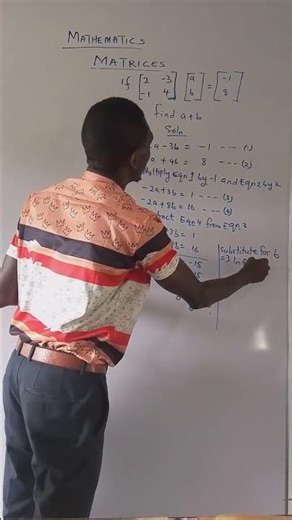 MATHEMATICS
MATRICES
If [2 -3] [a] = [-1]
[-1 4] [b] [8]
find a+b
Soln
a - 3b = -1 --- (1)
a + 4b = 8 --- (2)
Multiply Eqn 1 by -1 and Eqn 2 by 2
-2a + 3b = 1 --- (3)
-2a + 8b = 16 --- (4)
Eqn 4 from Eqn 3
3b = 1
b = 16
-15
substitute for b
=3 in